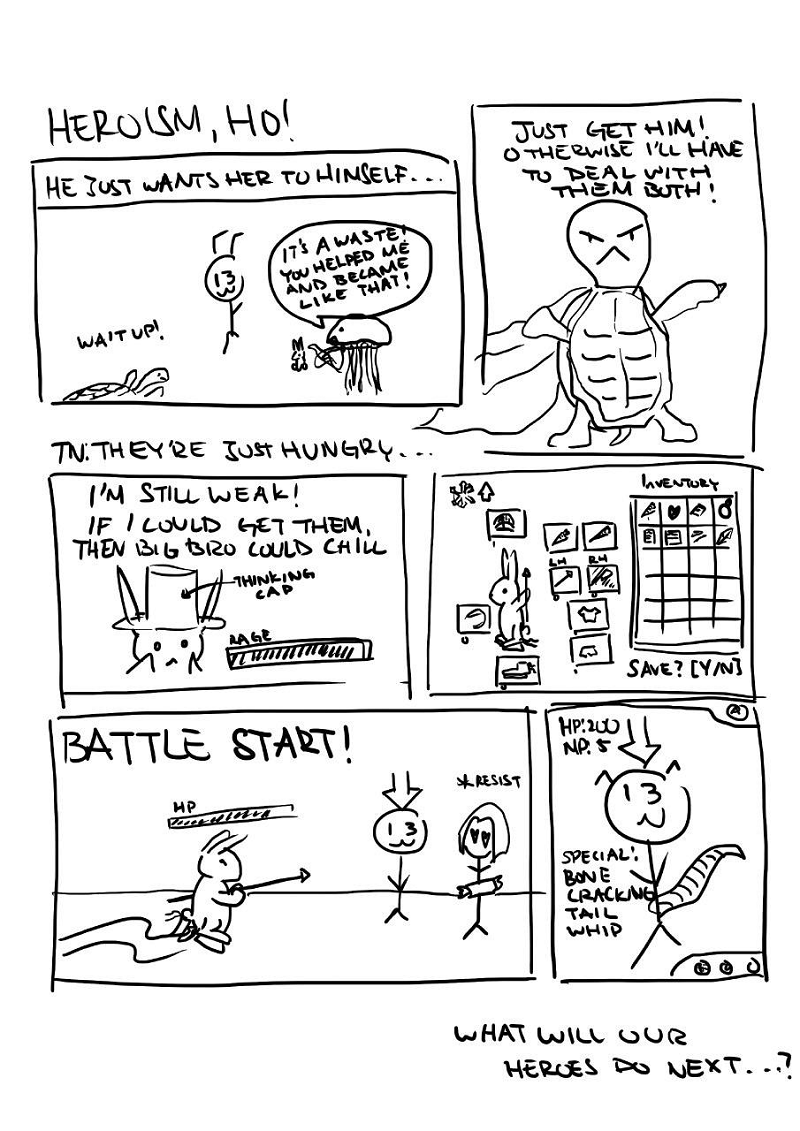 HEROISM, HO!
HE JUST WANTS HER TO HIMSELF...
IT'S A WASTE!
YOU HELPED ME
AND BECAME
LIKE THAT!
13
WAIT UP!
JUST GET HIM!
OTHERWISE I'LL HAVE
TO DEAL WITH
THEM BOTH!
TN: THEY'RE JUST HUNGRY...
I'M STILL WEAK!
IF I COULD GET THEM,
THEN BIG BRO COULD CHILL
THINKING
CAP
RAGE
INVENTORY
LH RH
SAVE? [Y/N]
BATTLE START!
HP
13
*RESIST
HP: 200
NP: 5
13
SPECIAL:
BONE
CRACKING
TAIL
WHIP
WHAT WILL OUR
HEROES DO NEXT...?